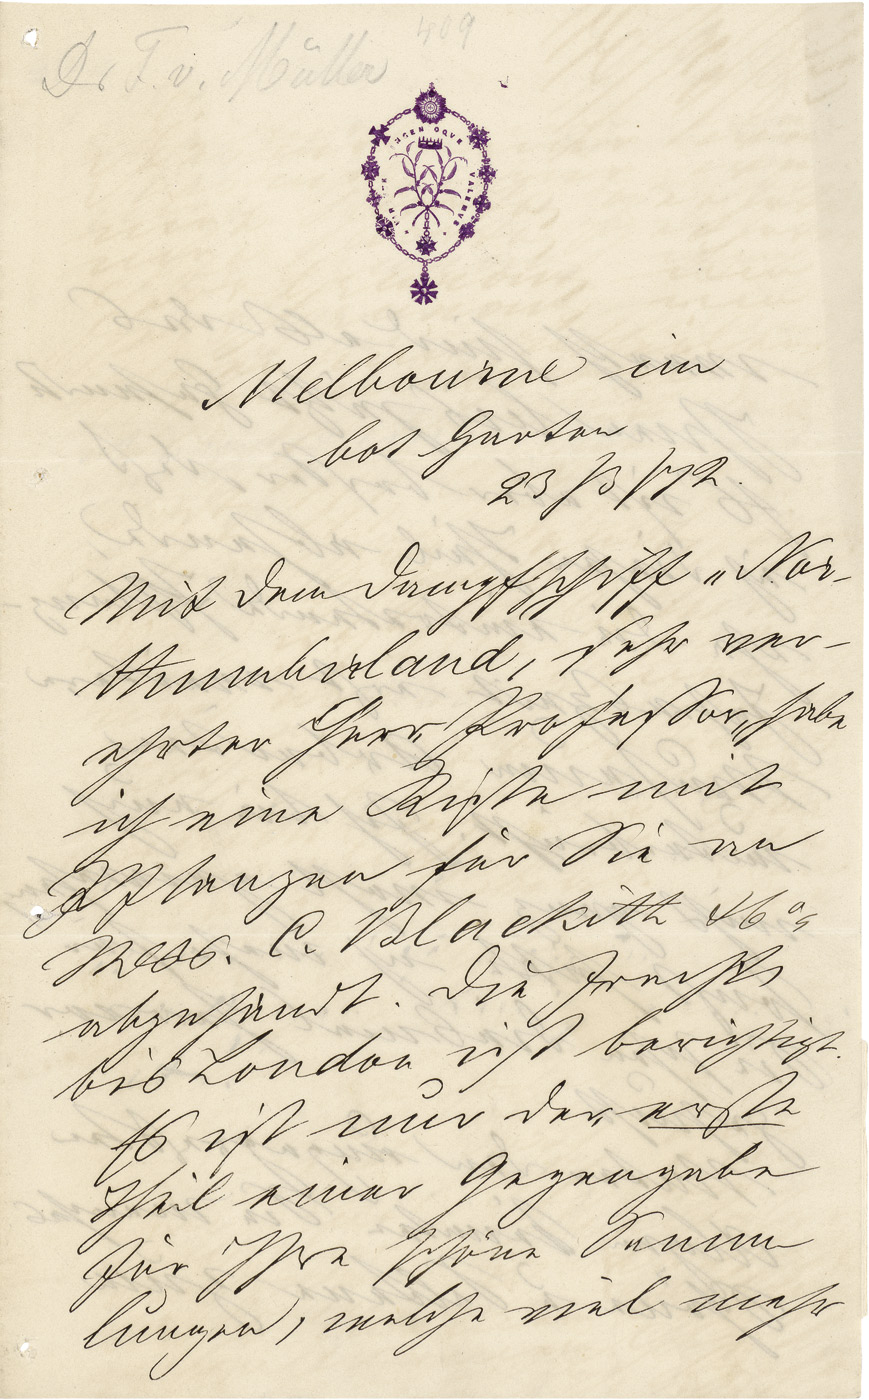 409
Dr F. v. Müller
Melbourne im
bot Garten
23/3/72.
Mit dem Dampfschiff „Nor-
thumberland, sehr ver-
ehrter Herr Professor, habe
ich eine Kiste mit
Pflanzen für Sie an
Mess. C. Blackith & Co
abgesandt. Die Fracht
bis London ist berichtigt.
Es ist nur der erste
Theil einer Gegengabe
für Ihre schöne Samm
lungen, welche viel mehr